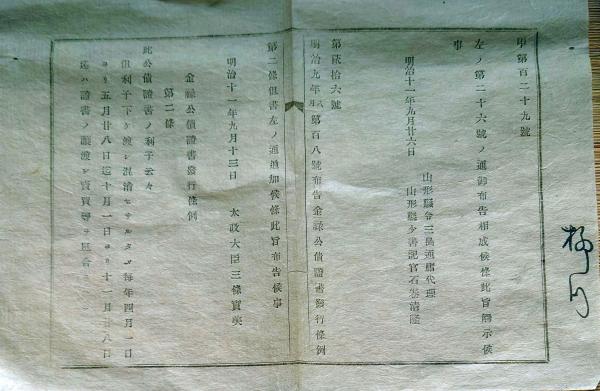 甲第百二十九號
左ノ第二十六號ノ通御布告相成候條此旨揭示候
事
明治十一年九月廿六日
山形縣令三島通庸代理
山形縣少書記官石巻清隆
第貳拾六號
明治九年八月第百八號布告金祿公債證書發行條例
第二條但書左ノ通追加候條此旨布告候事
明治十一年九月十三日
太政大臣三條實美
金祿公債證書發行條例
第二條
此公債證書ノ利子云々
但利子下ケ渡シ混淆セサルタメ毎年四月一日
ヨリ五月廿八日迄十月一日ヨリ十一月廿八日
迄ハ證書ノ讓渡シ賣買等ヲ